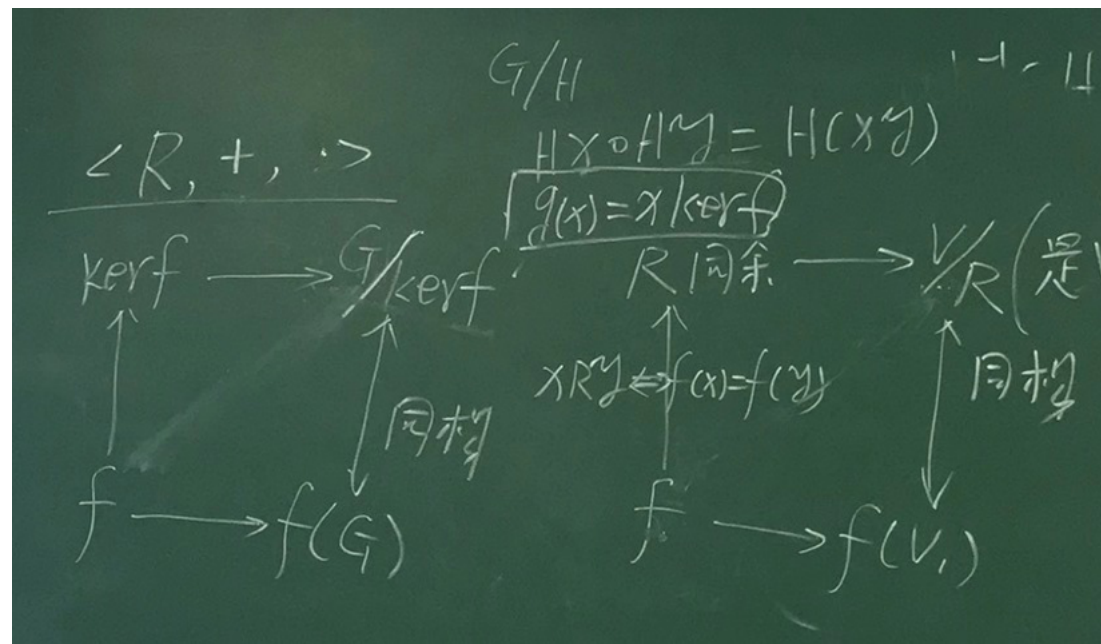 G/H
<R, +, ·>
Hx∘Hy = H(xy)
g(x)=x kerf
kerf → G/kerf
R同余 → V/R (是
xRy⇔f(x)=f(y)
同构
同构
f → f(G)
f → f(V₁)